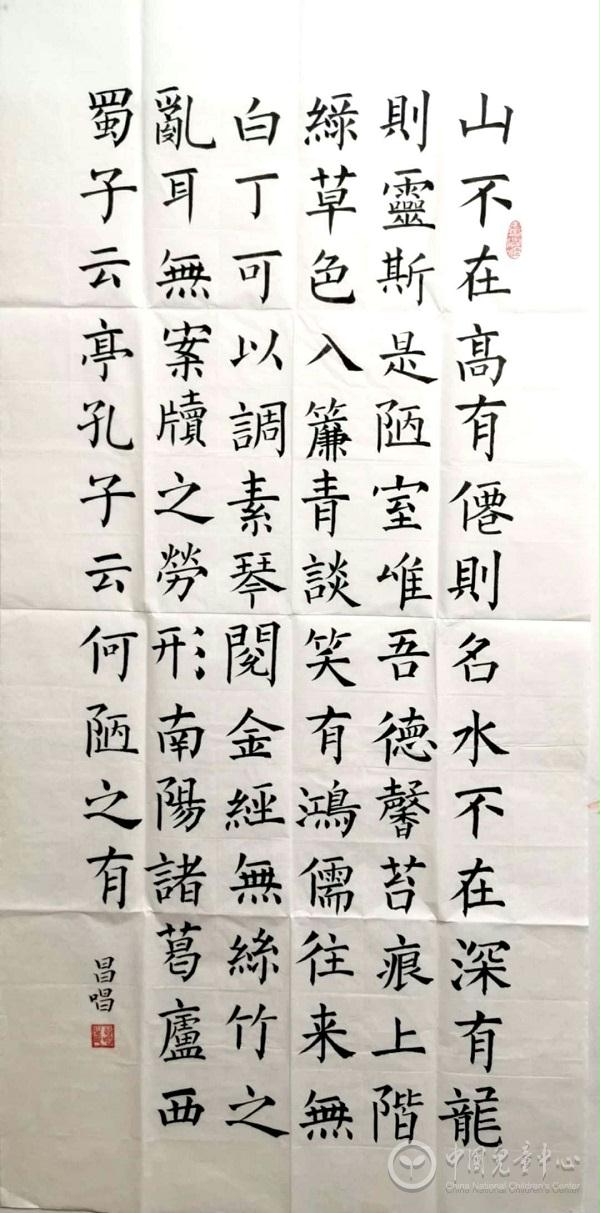 山不在高有僊則名水不在深有龍
則靈斯是陋室唯吾德馨苔痕上階
綠草色入簾青談笑有鴻儒往来無
白丁可以調素琴閱金經無絲竹之
亂耳無案牘之勞形南陽諸葛廬西
蜀子云亭孔子云何陋之有
昌唱
中國兒童中心
China National Children's Center